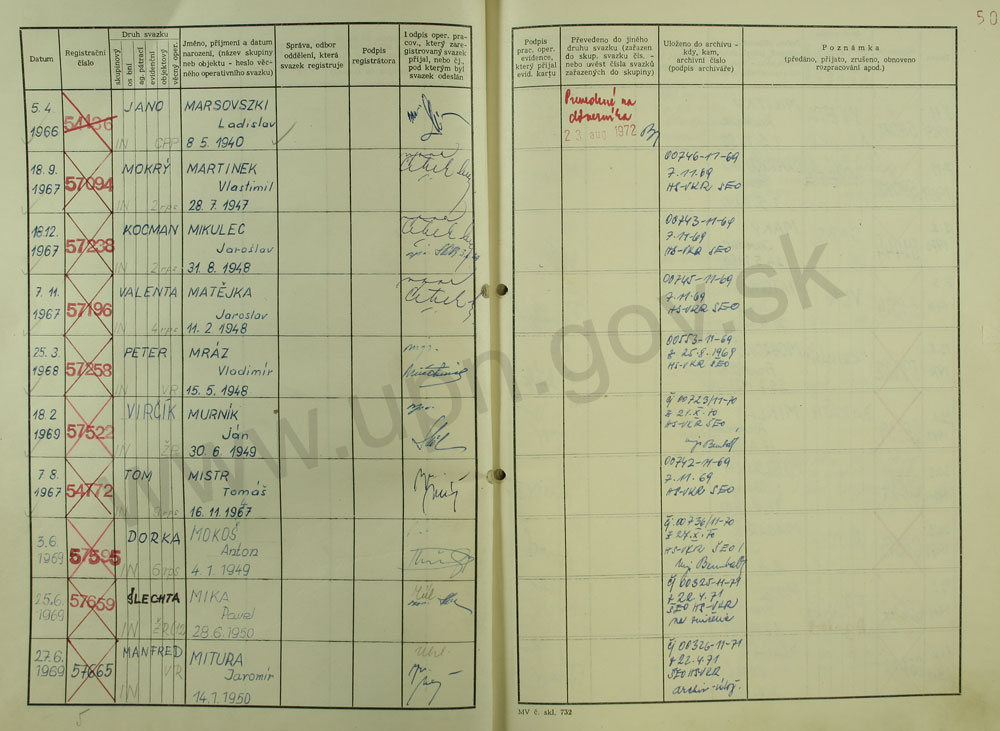 50
Datum
Registrační číslo
Druh svazku
skupinový
os bní
ag. pátrací
evidenční
objektový
věcný oper.
Jméno, příjmení a datum
narození, (název skupiny
neb objektu - heslo věc-
ného operativního svazku)
Správa, odbor
oddělení, která
svazek registruje
Podpis
registrátora
I odpis oper. pra-
cov., který zare-
gistrovaný svazek
přijal, nebo čj.,
pod kterým byl
svazek odeslán
Podpis
prac. oper.
evidence,
který přijal
evid. kartu
Převedeno do jiného
druhu svazku (zařazen
do skup. svazku čís. -
nebo uvést čísla svazků
zařazených do skupiny)
Uloženo do archivu -
kdy, kam,
archivní číslo
(podpis archiváře)
Poznámka
(předáno, přijato, zrušeno, obnoveno
rozpracování apod.)
5. 4. 1966 54436 JANO MARSOVSZKI
Ladislav
IN OPP 8 5. 1940
Prevedené na
dôverníka
23 aug 1972
18. 9. 1967 57094 MOKRÝ MARTINEK
Vlastimil
IN 2 rps 28. 7. 1947
00746-11-69
7.11.69
HS-VKR SEO
18.12. 1967 57238 KOCMAN MIKULEC
Jaroslav
IN 2 rps 31. 8. 1948
00743-11-69
7.11.69
HS-VKR SEO
7. 11. 1967 57196 VALENTA MATĚJKA
Jaroslav
IN 4 rps 11. 2. 1948
00745-11-69
7.11.69
HS-VKR SEO
25. 3. 1968 57258 PETER MRÁZ
Vladimír
IN VR 15. 5. 1948
00553-11-69
z 25.8.1969
HS-VKR SEO
18. 2. 1969 57522 VIRČÍK MURNÍK
Ján
IN ŽE 30. 6. 1949
čj 00723/11-70
z 21.X.70
HS-VKR SEO
7. 8. 1967 54772 TOM MISTR
Tomáš
IN rps 16. 11. 1967
00742-11-69
7.11.69
HS-VKR SEO
3. 6. 1969 57595 DORKA MOKOŠ
Anton
IN 6 rps 4. 1. 1949
čj. 00736/11-70
z 27.X.70
HS-VKR SEO
25. 6. 1969 57659 ŠLECHTA MIKA
Pavel
IN 28. 6. 1950
čj 00325-11-71
z 22.4.71
SEO HS-VKR
27. 6. 1969 57665 MANFRED MITURA
VR Jaromír
IN 14. 1. 1950
čj 00326-11-71
z 22.4.71
SEO HS-VKR
5
MV č. skl. 732
www.upn.gov.sk